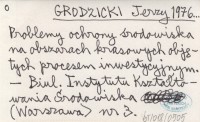 O
GRODZICKI Jerzy 1976...
Problemy ochrony środowiska
na obszarach krasowych obję-
tych procesem inwestycyjnym.
— Biul. Instytutu Kształto
wania Środowiska
(Warszawa nr 3.